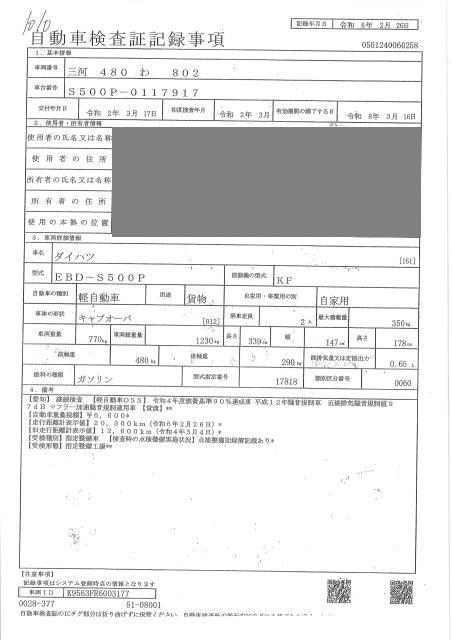 10/10
自動車検査証記録事項
記録年月日 令和 6年 2月 26日
0501240060258
1. 基本情報
車両番号 三河 480 わ 802
車台番号 S500P-0117917
交付年月日 令和 2年 3月 17日 初度検査年月 令和 2年 3月 有効期間の満了する日 令和 8年 3月 16日
2. 使用者・所有者情報
使用者の氏名又は名称
使用者の住所
所有者の氏名又は名称
所有者の住所
使用の本拠の位置
3. 車両詳細情報
車名 ダイハツ [151]
型式 EBD-S500P 原動機の型式 KF
自動車の種別 軽自動車 用途 貨物 自家用・事業用の別 自家用
車体の形状 キャブオーバ [012] 乗車定員 2人 最大積載量 350kg
車両重量 770kg 車両総重量 1230kg 長さ 339cm 幅 147cm 高さ 178cm
前軸重 480kg 後軸重 290kg 総排気量又は定格出力 0.65 L
燃料の種類 ガソリン 型式指定番号 17818 類別区分番号 0060
4. 備考
【愛知】 継続検査 【軽自動車OSS】 令和4年度燃費基準90%達成車 平成12年騒音規制車 近接排気騒音規制値9
7dB マフラー加速騒音規制適用車 【貨渡】**
[自動車重量税額] ¥6,600*
[走行距離計表示値] 20,300km (令和6年2月26日)*
[旧走行距離計表示値] 12,600km (令和4年3月4日)*
[受検種別] 指定整備車 [検査時の点検整備実施状況] 点検整備記録簿記載あり*
[受検形態] 指定整備工場**
[注意事項]
記録事項はシステム登録時点の情報となります
車両ID K9563FR6003177
0028-377 51-08001
自動車検査証のICタグ部分は折り曲げずに保管ください。